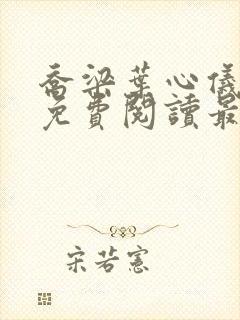 喬梁葉心儀
免費閱讀最
宋若憲